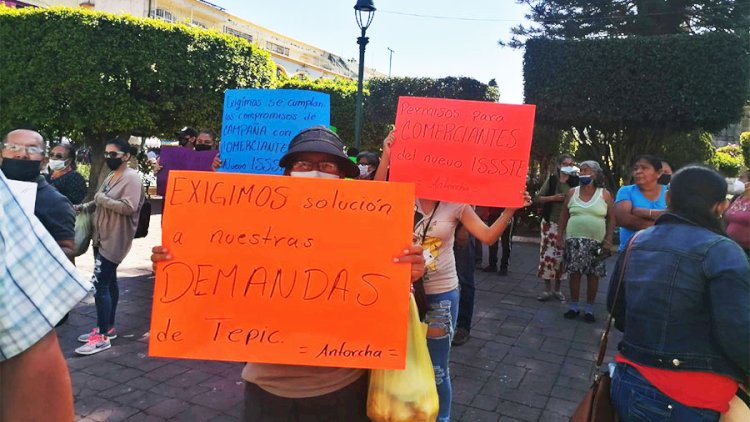 EXIGIMOS solución
a nuestras
DEMANDAS
de Tepic.
= Antorcha =
Exigimos se cumplan
los compromisos de
CAMPAÑA con
COMERCIANTES
nuevo ISSSTE
Permisos para
COMERCIANTES
del nuevo ISSSTE
- Antorcha -